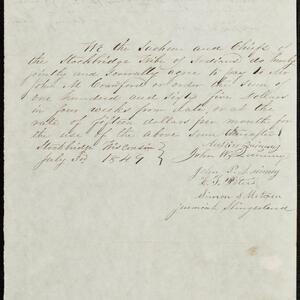 We the Sachem and Chiefs of
the Stockbridge Tribe of Indians do hereby
jointly and severally agree to pay to Mr
John M Crawford or order the sum of
one hundred and sixty five dollars
in four weeks from date, or at the
rate of fifteen dollars per month for
the use of the above sum thereafter
Stockbridge Wisconsin
July 3d 1849
Quinney
John W Quinney
John P. Quinney
Peters
Simon S Metoxen
Jeremiah Slingerland